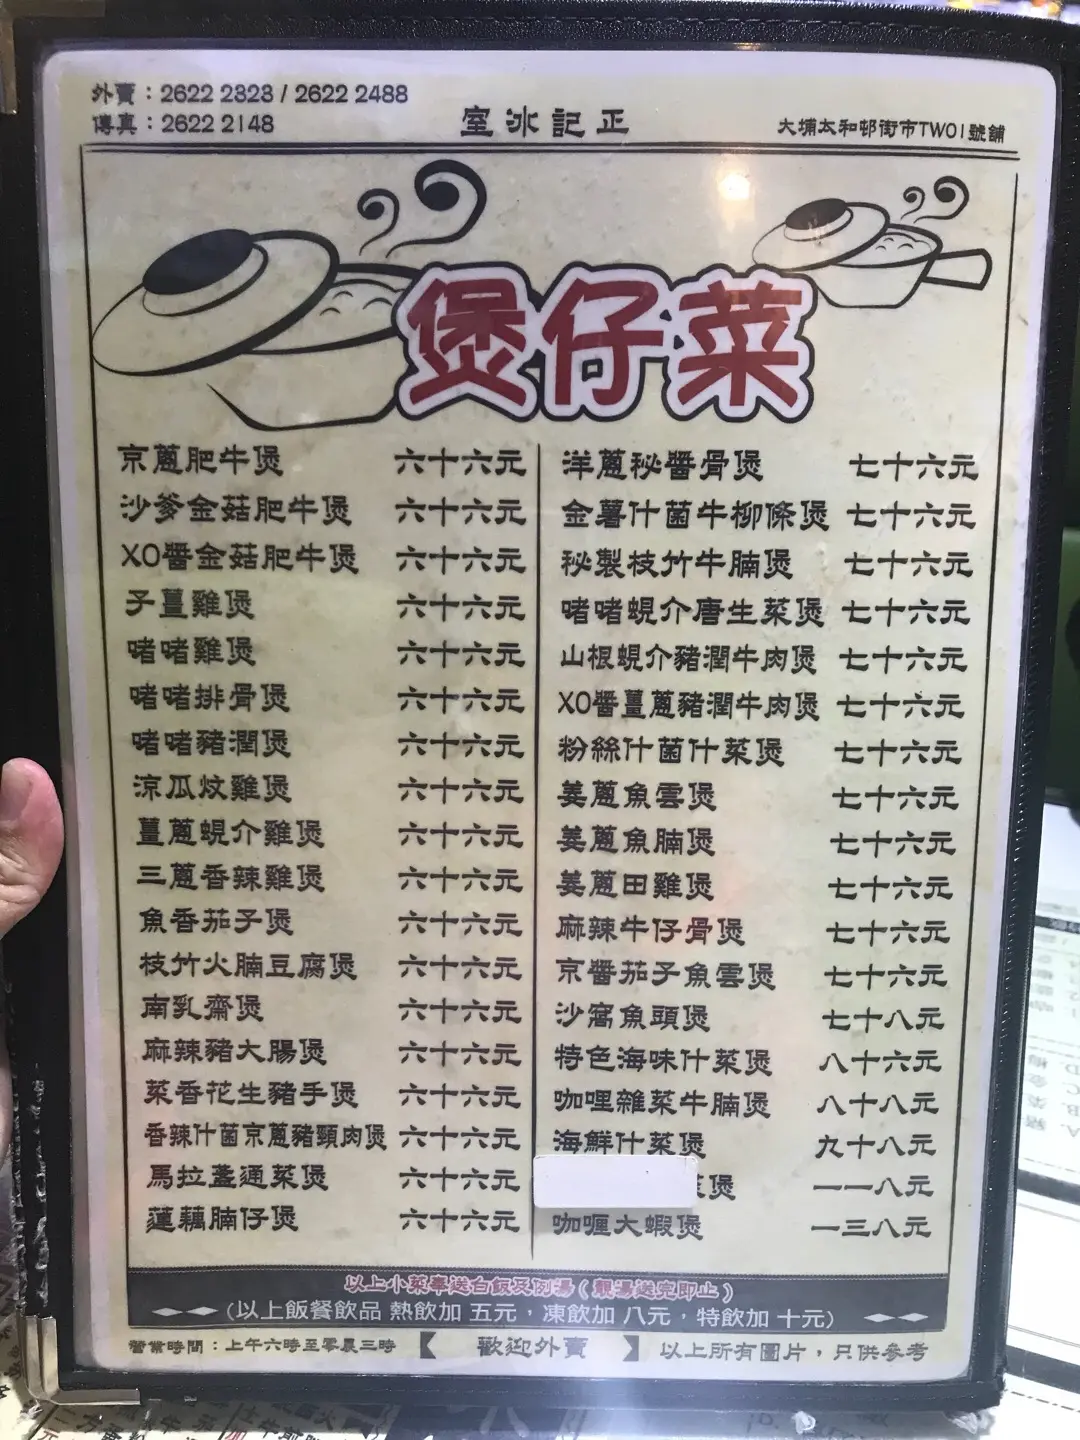 外賣：2622 2323 / 2622 2488
傳真：2622 2148
室冰記正
大埔太和邨街市TW01號舖
煲仔菜
京蔥肥牛煲 六十六元
沙爹金菇肥牛煲 六十六元
XO醬金菇肥牛煲 六十六元
子薑雞煲 六十六元
啫啫雞煲 六十六元
啫啫排骨煲 六十六元
啫啫豬潤煲 六十六元
涼瓜炆雞煲 六十六元
薑蔥蜆介雞煲 六十六元
三蔥香辣雞煲 六十六元
魚香茄子煲 六十六元
枝竹火腩豆腐煲 六十六元
南乳齋煲 六十六元
麻辣豬大腸煲 六十六元
菜香花生豬手煲 六十六元
香辣什菌京蔥豬頸肉煲 六十六元
馬拉盞通菜煲 六十六元
蓮藕腩仔煲 六十六元
洋蔥秘醬骨煲 七十六元
金薯什菌牛柳條煲 七十六元
秘製枝竹牛腩煲 七十六元
啫啫蜆介唐生菜煲 七十六元
山根蜆介豬潤牛肉煲 七十六元
XO醬薑蔥豬潤牛肉煲 七十六元
粉絲什菌什菜煲 七十六元
姜蔥魚雲煲 七十六元
姜蔥魚腩煲 七十六元
姜蔥田雞煲 七十六元
麻辣牛仔骨煲 七十六元
京醬茄子魚雲煲 七十六元
沙窩魚頭煲 七十八元
特色海味什菜煲 八十六元
咖哩雜菜牛腩煲 八十八元
海鮮什菜煲 九十八元
煲 一一八元
咖喱大蝦煲 一三八元
以上小菜奉送白飯及例湯（靚湯送完即止）
（以上飯餐飲品 熱飲加 五元，凍飲加 八元，特飲加 十元）
營業時間：上午六時至零晨三時
歡迎外賣
以上所有圖片，只供參考